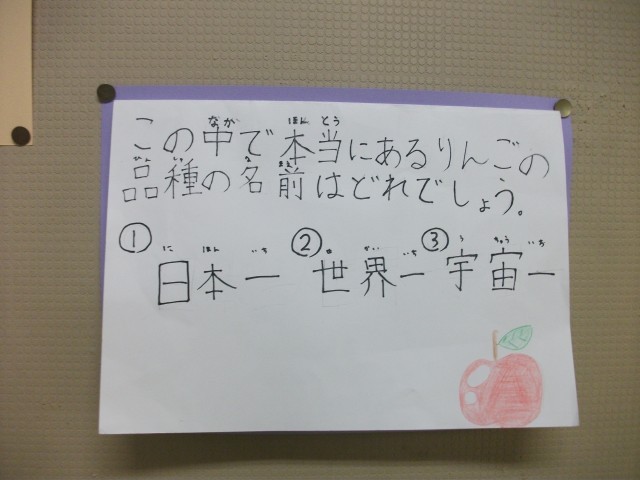 この中で本当にあるりんごの
品種の名前はどれでしょう。
① 日本一 ② 世界一 ③ 宇宙一